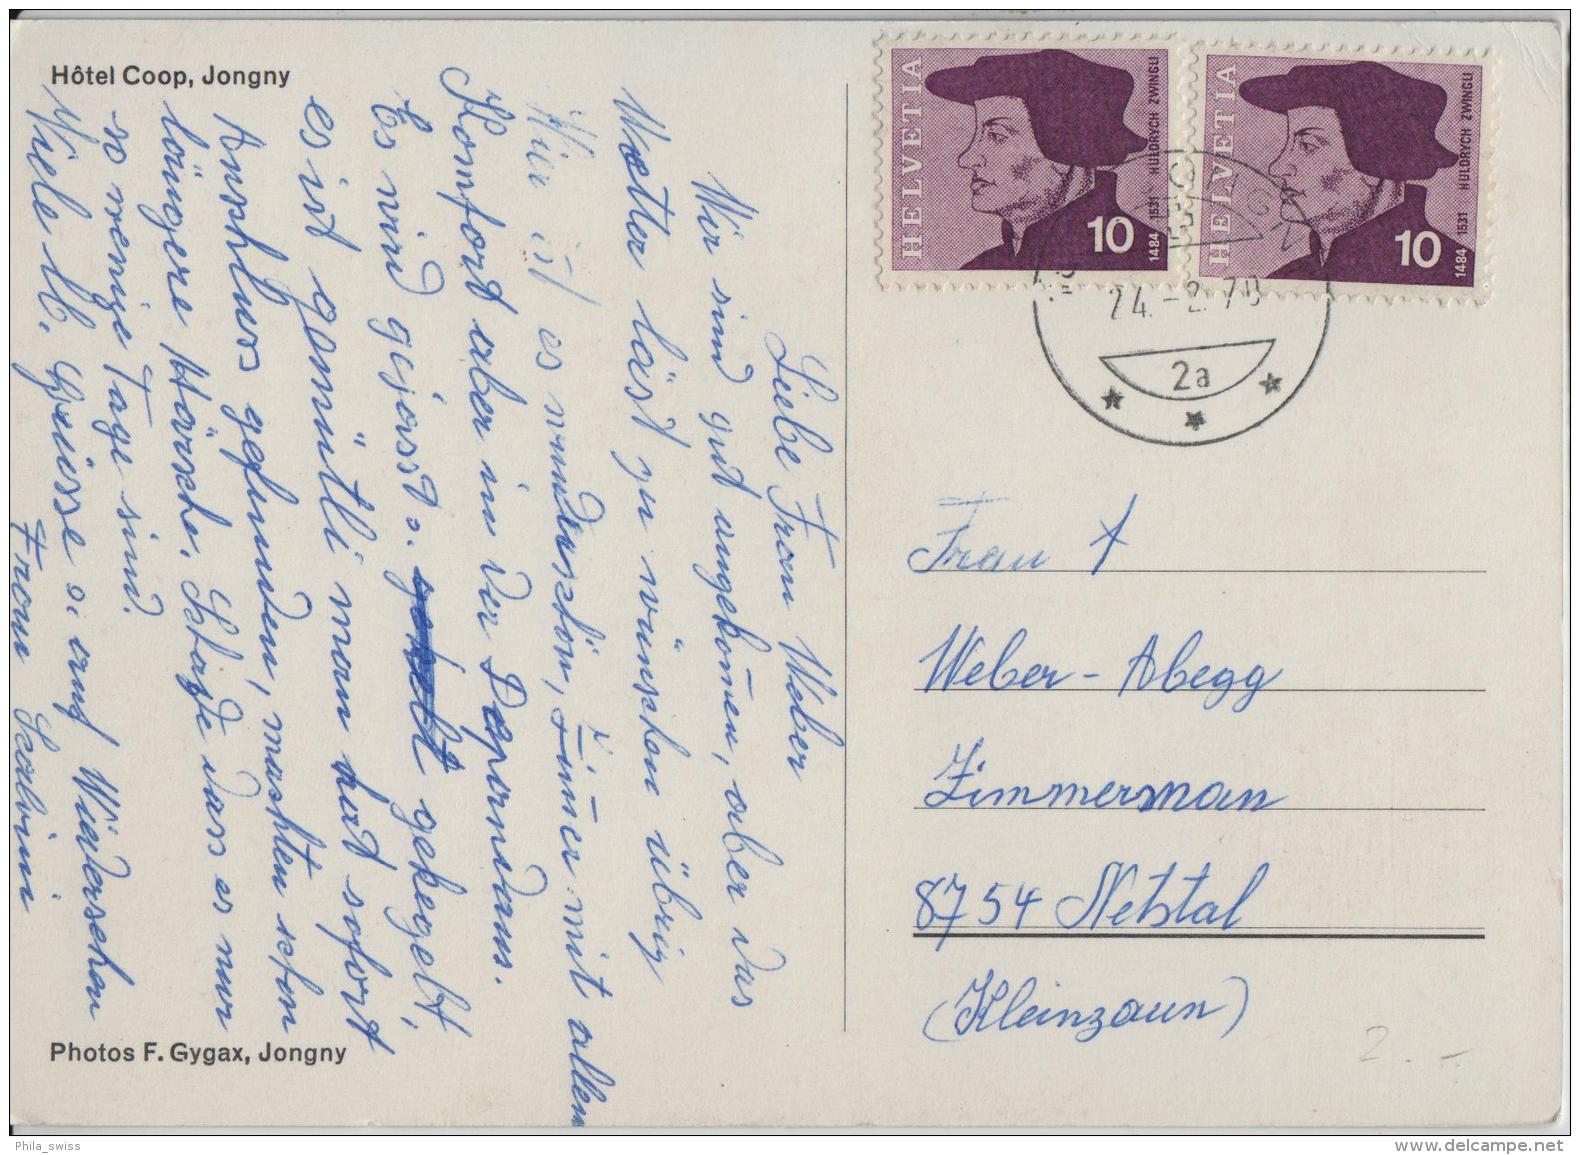 Hôtel Coop, Jongny
Liebe Frau Weber
Wir sind gut angekomen, aber das
Wetter läst zu wünschen übrig
Hier ist es wunderschön, Zimer mit allem
Komfort aber in der Depandans.
Es wird gejasst. gekegelt,
es ist gemütli man hat sofort
Anschluss gefunden, machten schon
längere Märsche. Schade dass es nur
so wenige Tage sind.
Viele lb. Grüsse s. auf Wiedersehen
Frau
Photos F. Gygax, Jongny
HELVETIA
10
1484 1531 HULDRYCH ZWINGLI
HELVETIA
10
1484 1531 HULDRYCH ZWINGLI
24.-2.70
2a
Frau
Weber-Abegg
Zimmerman
8754 Netstal
(Kleinzaun)
2.-
Phila_swiss
www.delcampe.net